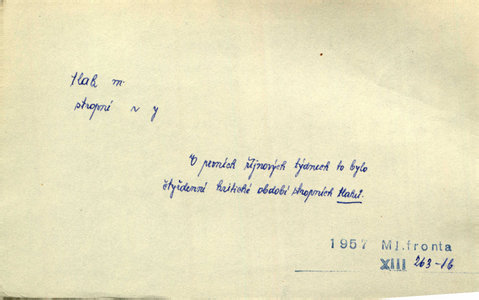 tlak m.
stropné v y
V prvních říjnových týdnech to bylo
čtyřdenní kritické období stropních tlaků.
1957 Ml.fronta
XIII 263-16